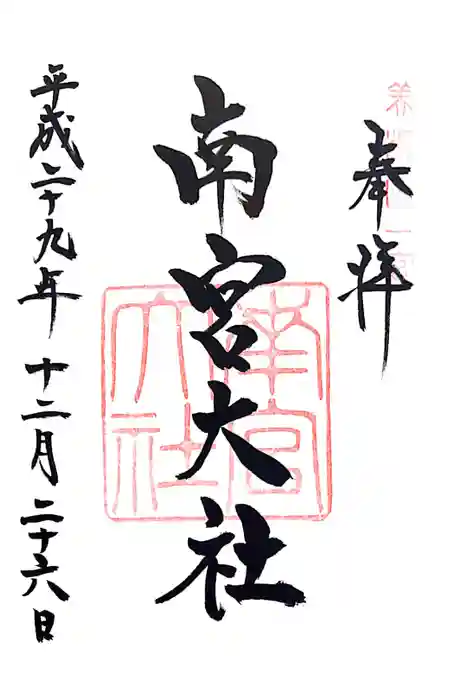 奉拝
南宮大社
南宮大社
平成二十九年十二月二十六日